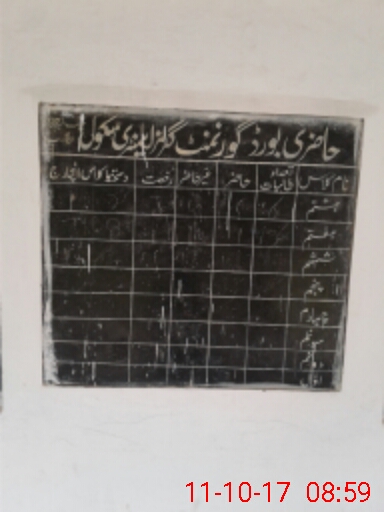 حاضری بورڈ گورنمنٹ گرلز ایلیمنٹری سکول
نام کلاس تعداد طالبات حاضر غیر حاضر رخصت دستخط کلاس انچارج
ہشتم
ہفتم
ششم
پنجم
چہارم
سوئم
دوئم
اول
11-10-17 08:59